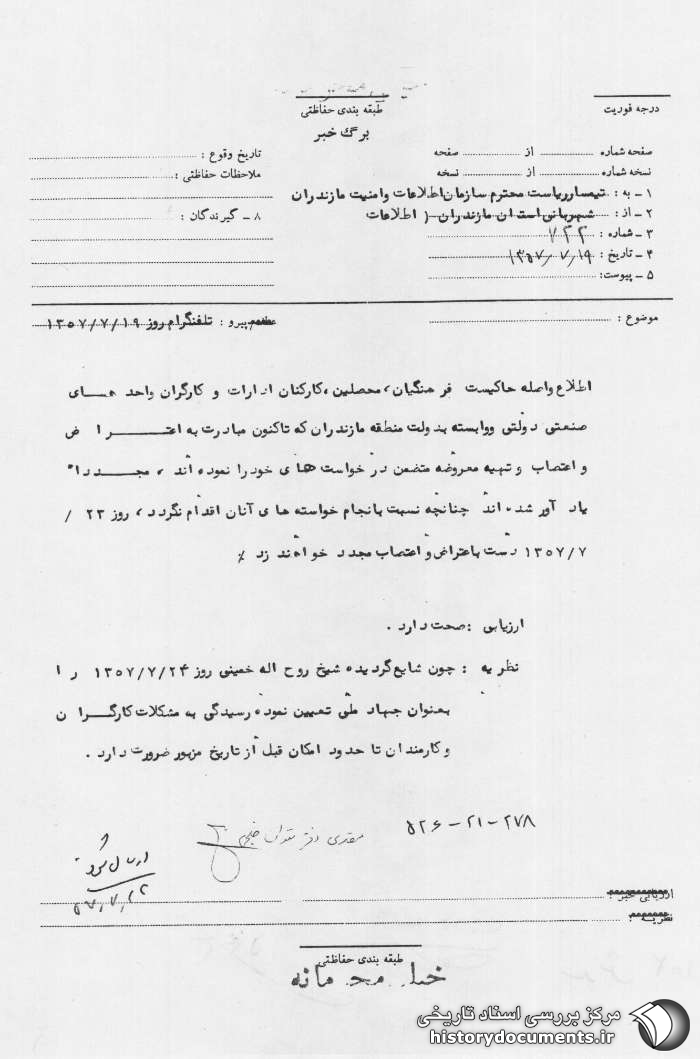 طبقه بندی حفاظتی
درجه فوریت
برگ خبر
صفحه شماره از صفحه
تاریخ وقوع :
نسخه شماره از نسخه
ملاحظات حفاظتی :
۱ ـ به : تیمسار ریاست محترم سازمان اطلاعات وامنیت مازندران
۲ ـ از : شهربانی استان مازندران ( اطلاعات
۸ ـ گیرندگان :
۳ ـ شماره : ۷۲۲
۴ ـ تاریخ : ۱۳۵۷/۷/۱۹
۵ ـ پیوست:
موضوع :
پیرو : تلفنگرام روز ۱۳۵۷/۷/۱۹
اطلاع واصله حاکیست فرهنگیان، محصلین، کارکنان ادارات و کارگران واحد هــای
صنعتی دولتی ووابسته بدولت منطقه مازندران که تاکنون مبادرت به اعتــراض
و اعتصاب وتهیه معروضه متضمن درخواست های خود را نموده اند ، مجــددا"
یاد آور شده اند چنانچه نسبت بانجام خواسته های آنان اقدام نگردد ، روز ۲۳ /
۱۳۵۷/۷ دست باعتراض و اعتصاب مجدد خواهند زد ٪
ارزیابی : صحت دارد .
نظریه : چون شایع گردیده شیخ روح اله خمینی روز ۱۳۵۷/۷/۲۴ را
بعنوان جهاد ملی تعیین نموده رسیدگی به مشکلات کارگــران
وکارمندان تا حدود امکان قبل از تاریخ مزبور ضرورت دارد .
۵۲۶-۲۱-۲۷۸
ارسال گردد
۵۷/۷/۲۲
ارزیابی خبر :
نظریه :
طبقه بندی حفاظتی
خیلی محرمانه
مرکز بررسی اسناد تاریخی
historydocuments.ir